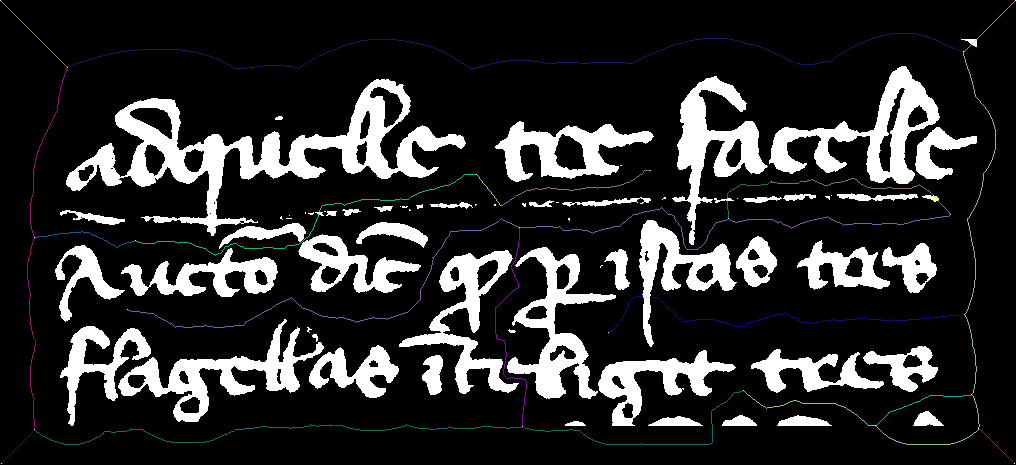 adquielle tre facelle
Aucto dic qp p istas tres
flagellas inteligit tres